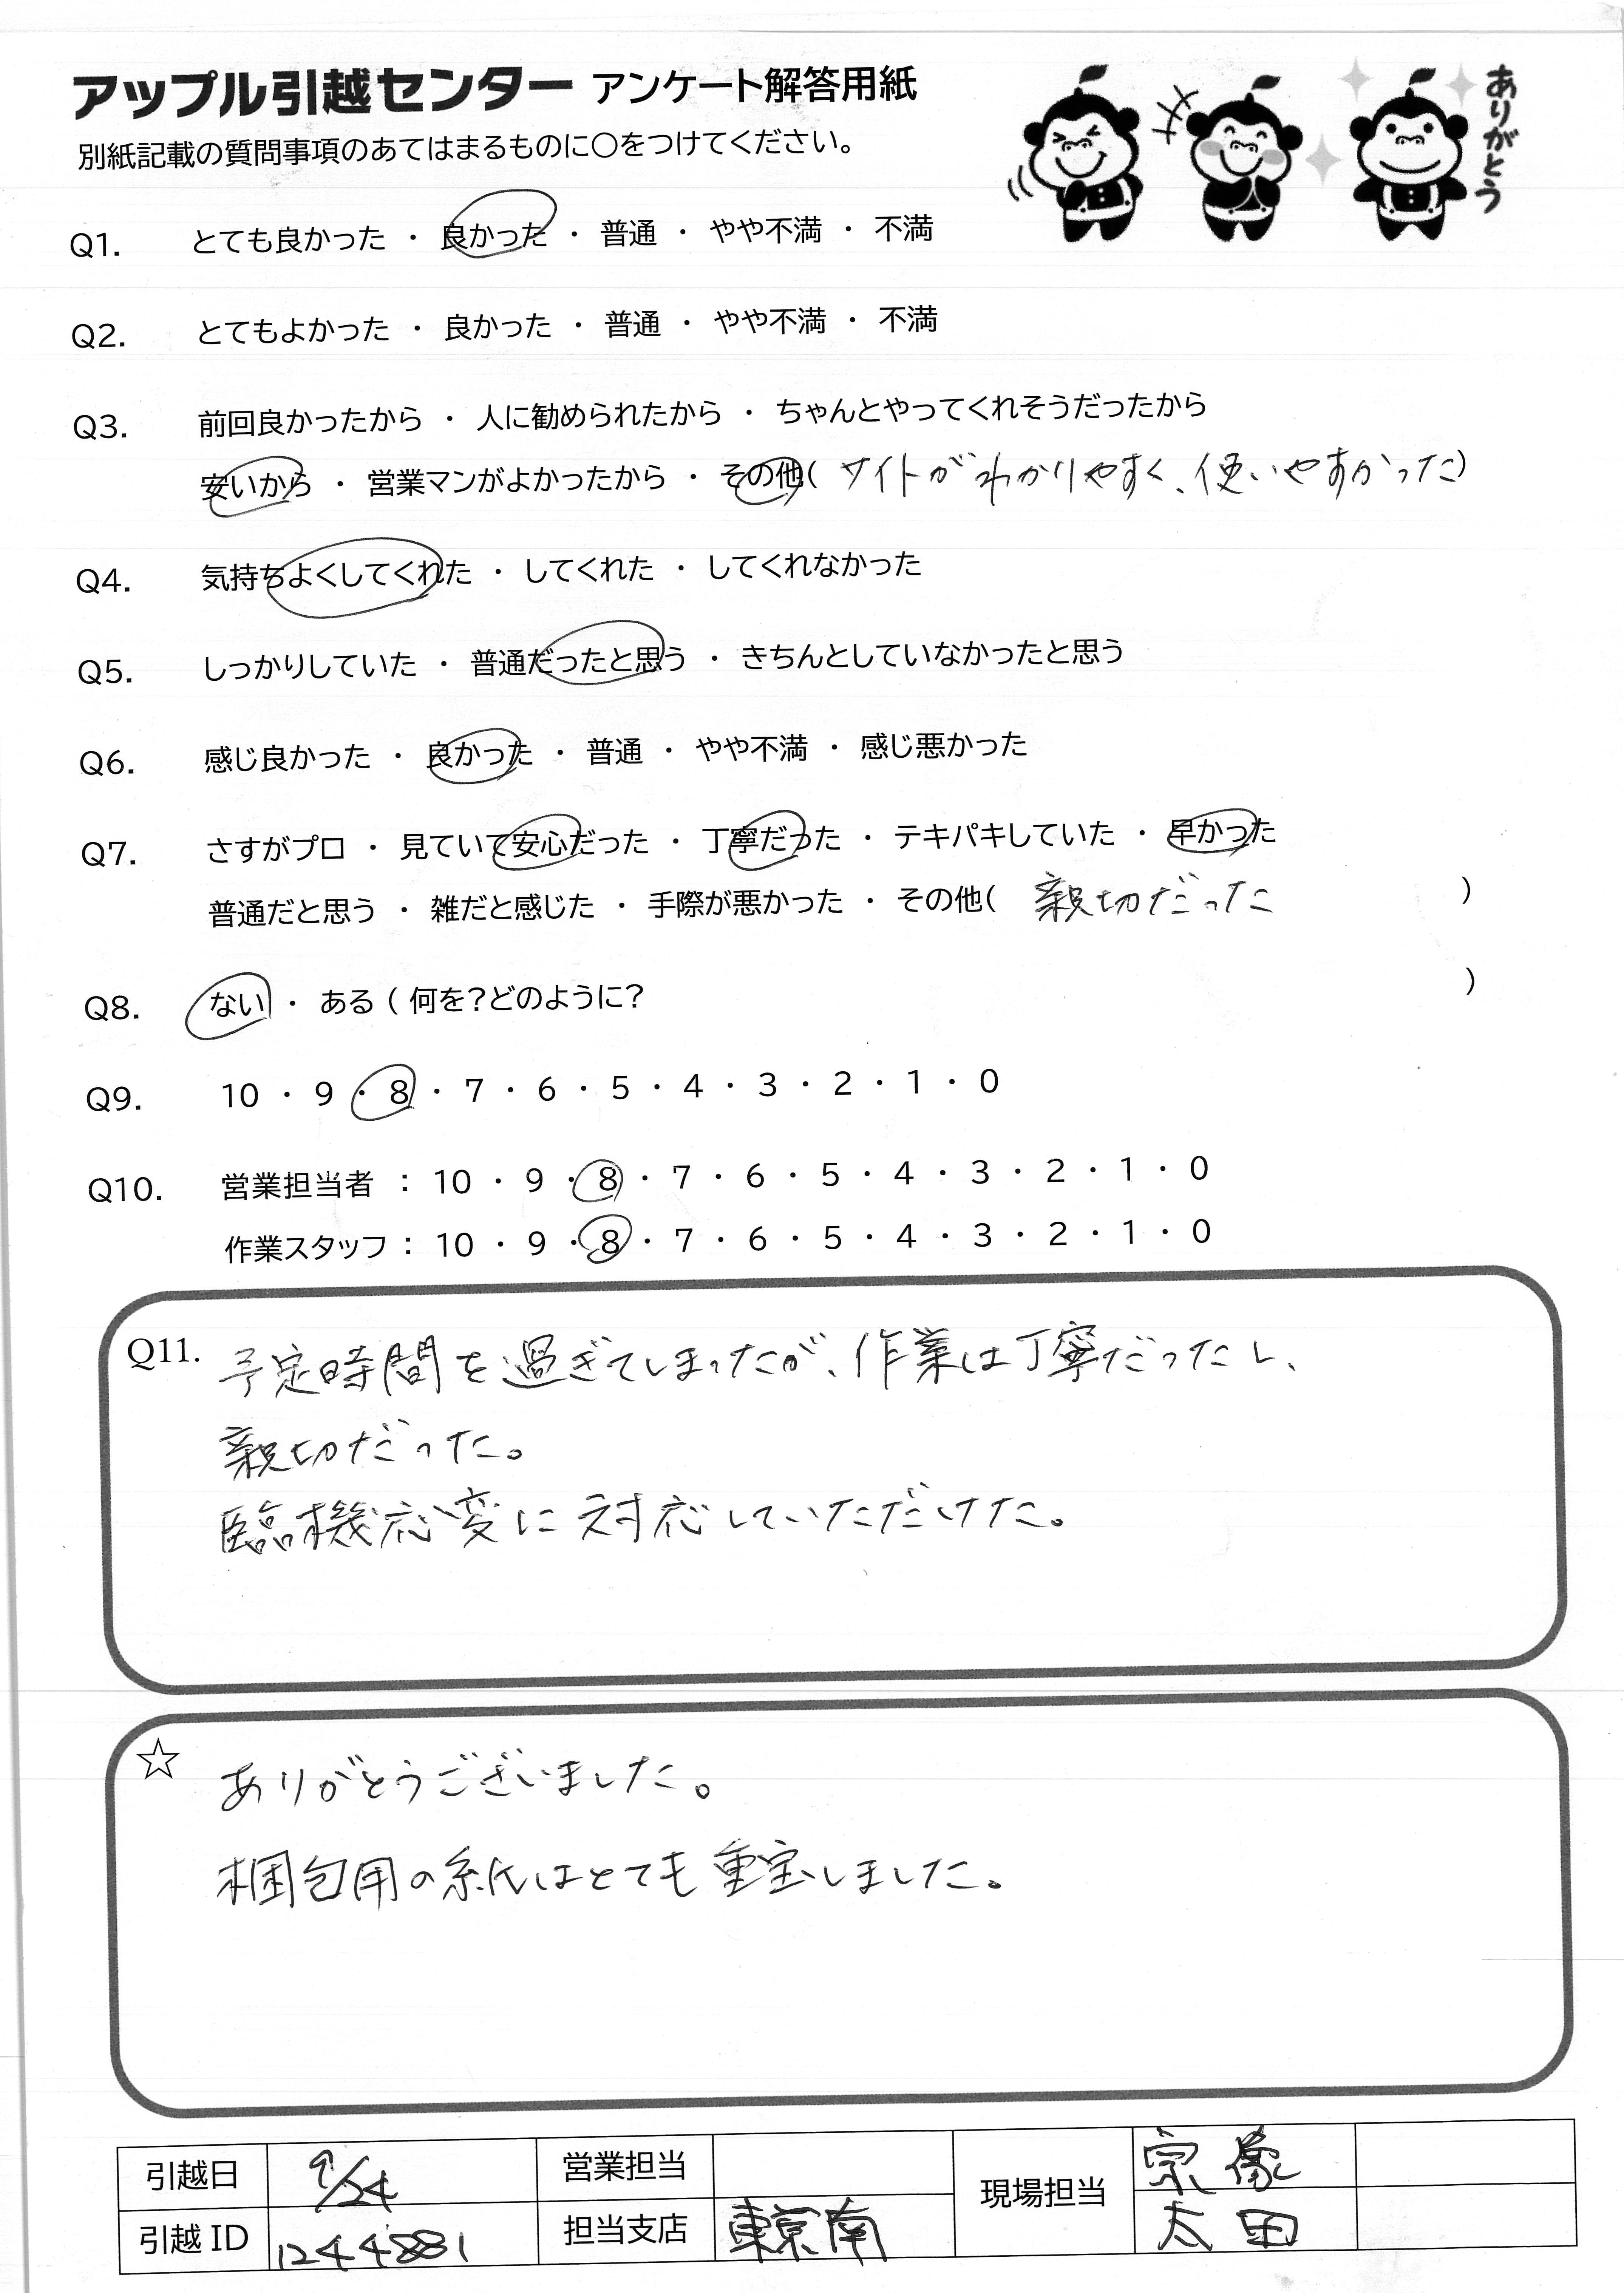 アップル引越センター アンケート解答用紙
ありがとう
別紙記載の質問事項のあてはまるものに〇をつけてください。
Q1. とても良かった ・ 良かった ・ 普通 ・ やや不満 ・ 不満
Q2. とてもよかった ・ 良かった ・ 普通 ・ やや不満 ・ 不満
Q3. 前回良かったから ・ 人に勧められたから ・ ちゃんとやってくれそうだったから
安いから ・ 営業マンがよかったから ・ その他( サイトがわかりやすく、使いやすかった)
Q4. 気持ちよくしてくれた ・ してくれた ・ してくれなかった
Q5. しっかりしていた ・ 普通だったと思う ・ きちんとしていなかったと思う
Q6. 感じ良かった ・ 良かった ・ 普通 ・ やや不満 ・ 感じ悪かった
Q7. さすがプロ ・ 見ていて安心だった ・ 丁寧だった ・ テキパキしていた ・ 早かった
普通だと思う ・ 雑だと感じた ・ 手際が悪かった ・ その他( 親切だった )
Q8. ない ・ ある ( 何を?どのように? )
Q9. 10 ・ 9 ・ 8 ・ 7 ・ 6 ・ 5 ・ 4 ・ 3 ・ 2 ・ 1 ・ 0
Q10. 営業担当者 : 10 ・ 9 ・ 8 ・ 7 ・ 6 ・ 5 ・ 4 ・ 3 ・ 2 ・ 1 ・ 0
作業スタッフ : 10 ・ 9 ・ 8 ・ 7 ・ 6 ・ 5 ・ 4 ・ 3 ・ 2 ・ 1 ・ 0
Q11. 予定時間を過ぎてしまったが、作業は丁寧だったし、
親切だった。
臨機応変に対応していただけた。
☆ ありがとうございました。
梱包用の紙はとても重宝しました。
引越日 9/24 営業担当 現場担当 宗像
引越ID 1244881 担当支店 東京南 太田